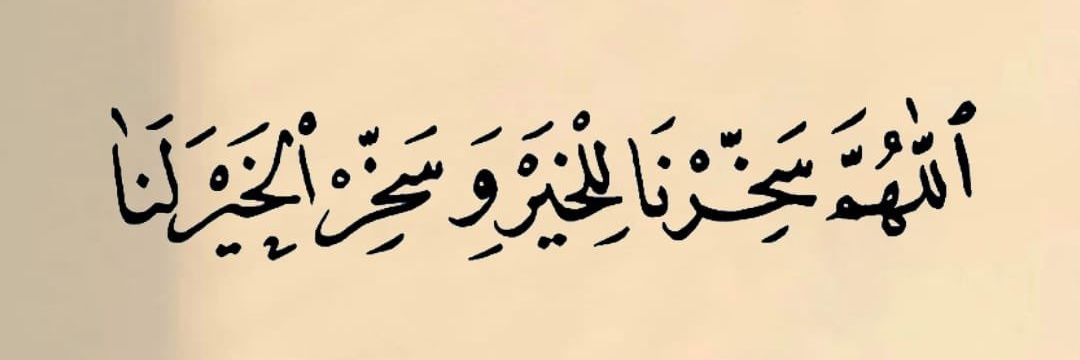 ٱللّٰهُمَّ سَخِّرْنَا لِلْخَيْرِ وَ سَخِّرْ ٱلْخَيْرَ لَنَا